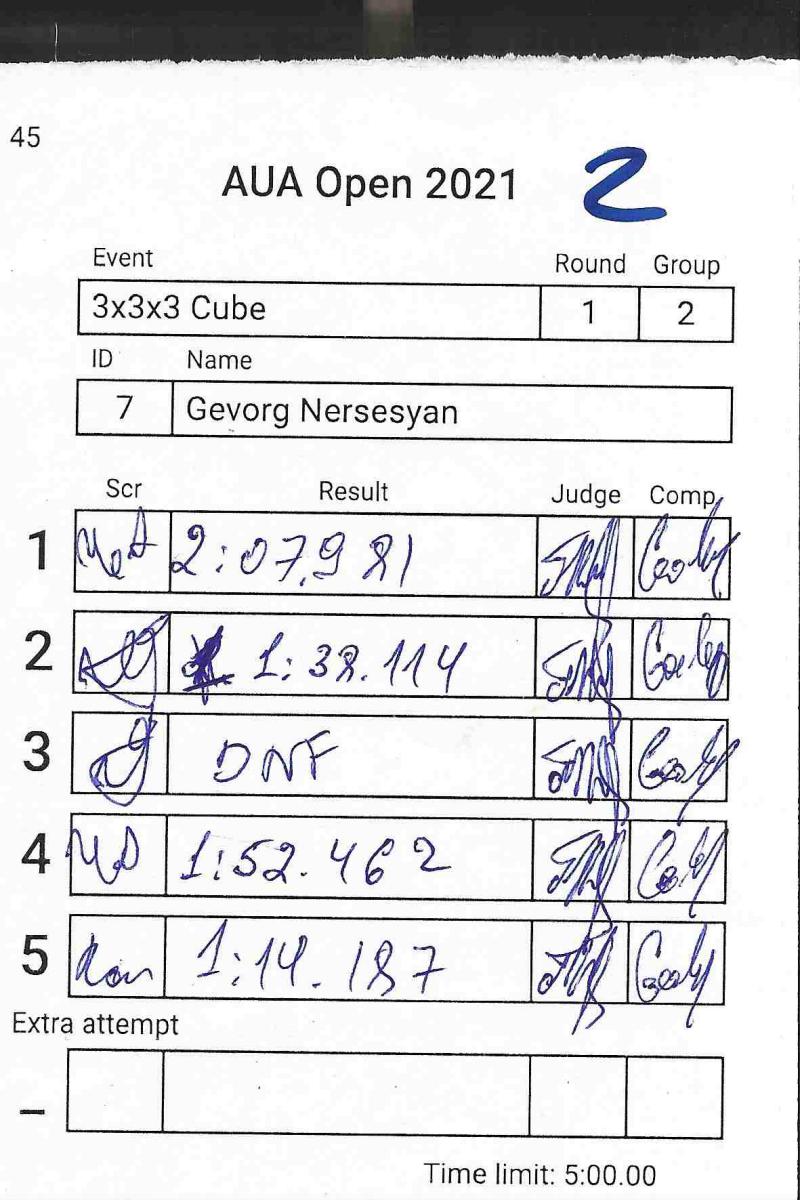 45
AUA Open 2021 2
Event Round Group
3x3x3 Cube 1 2
ID Name
7 Gevorg Nersesyan
Scr Result Judge Comp
1 2:07.981
2 1:38.114
3 DNF
4 1:52.462
5 1:14.187
Extra attempt
–
Time limit: 5:00.00